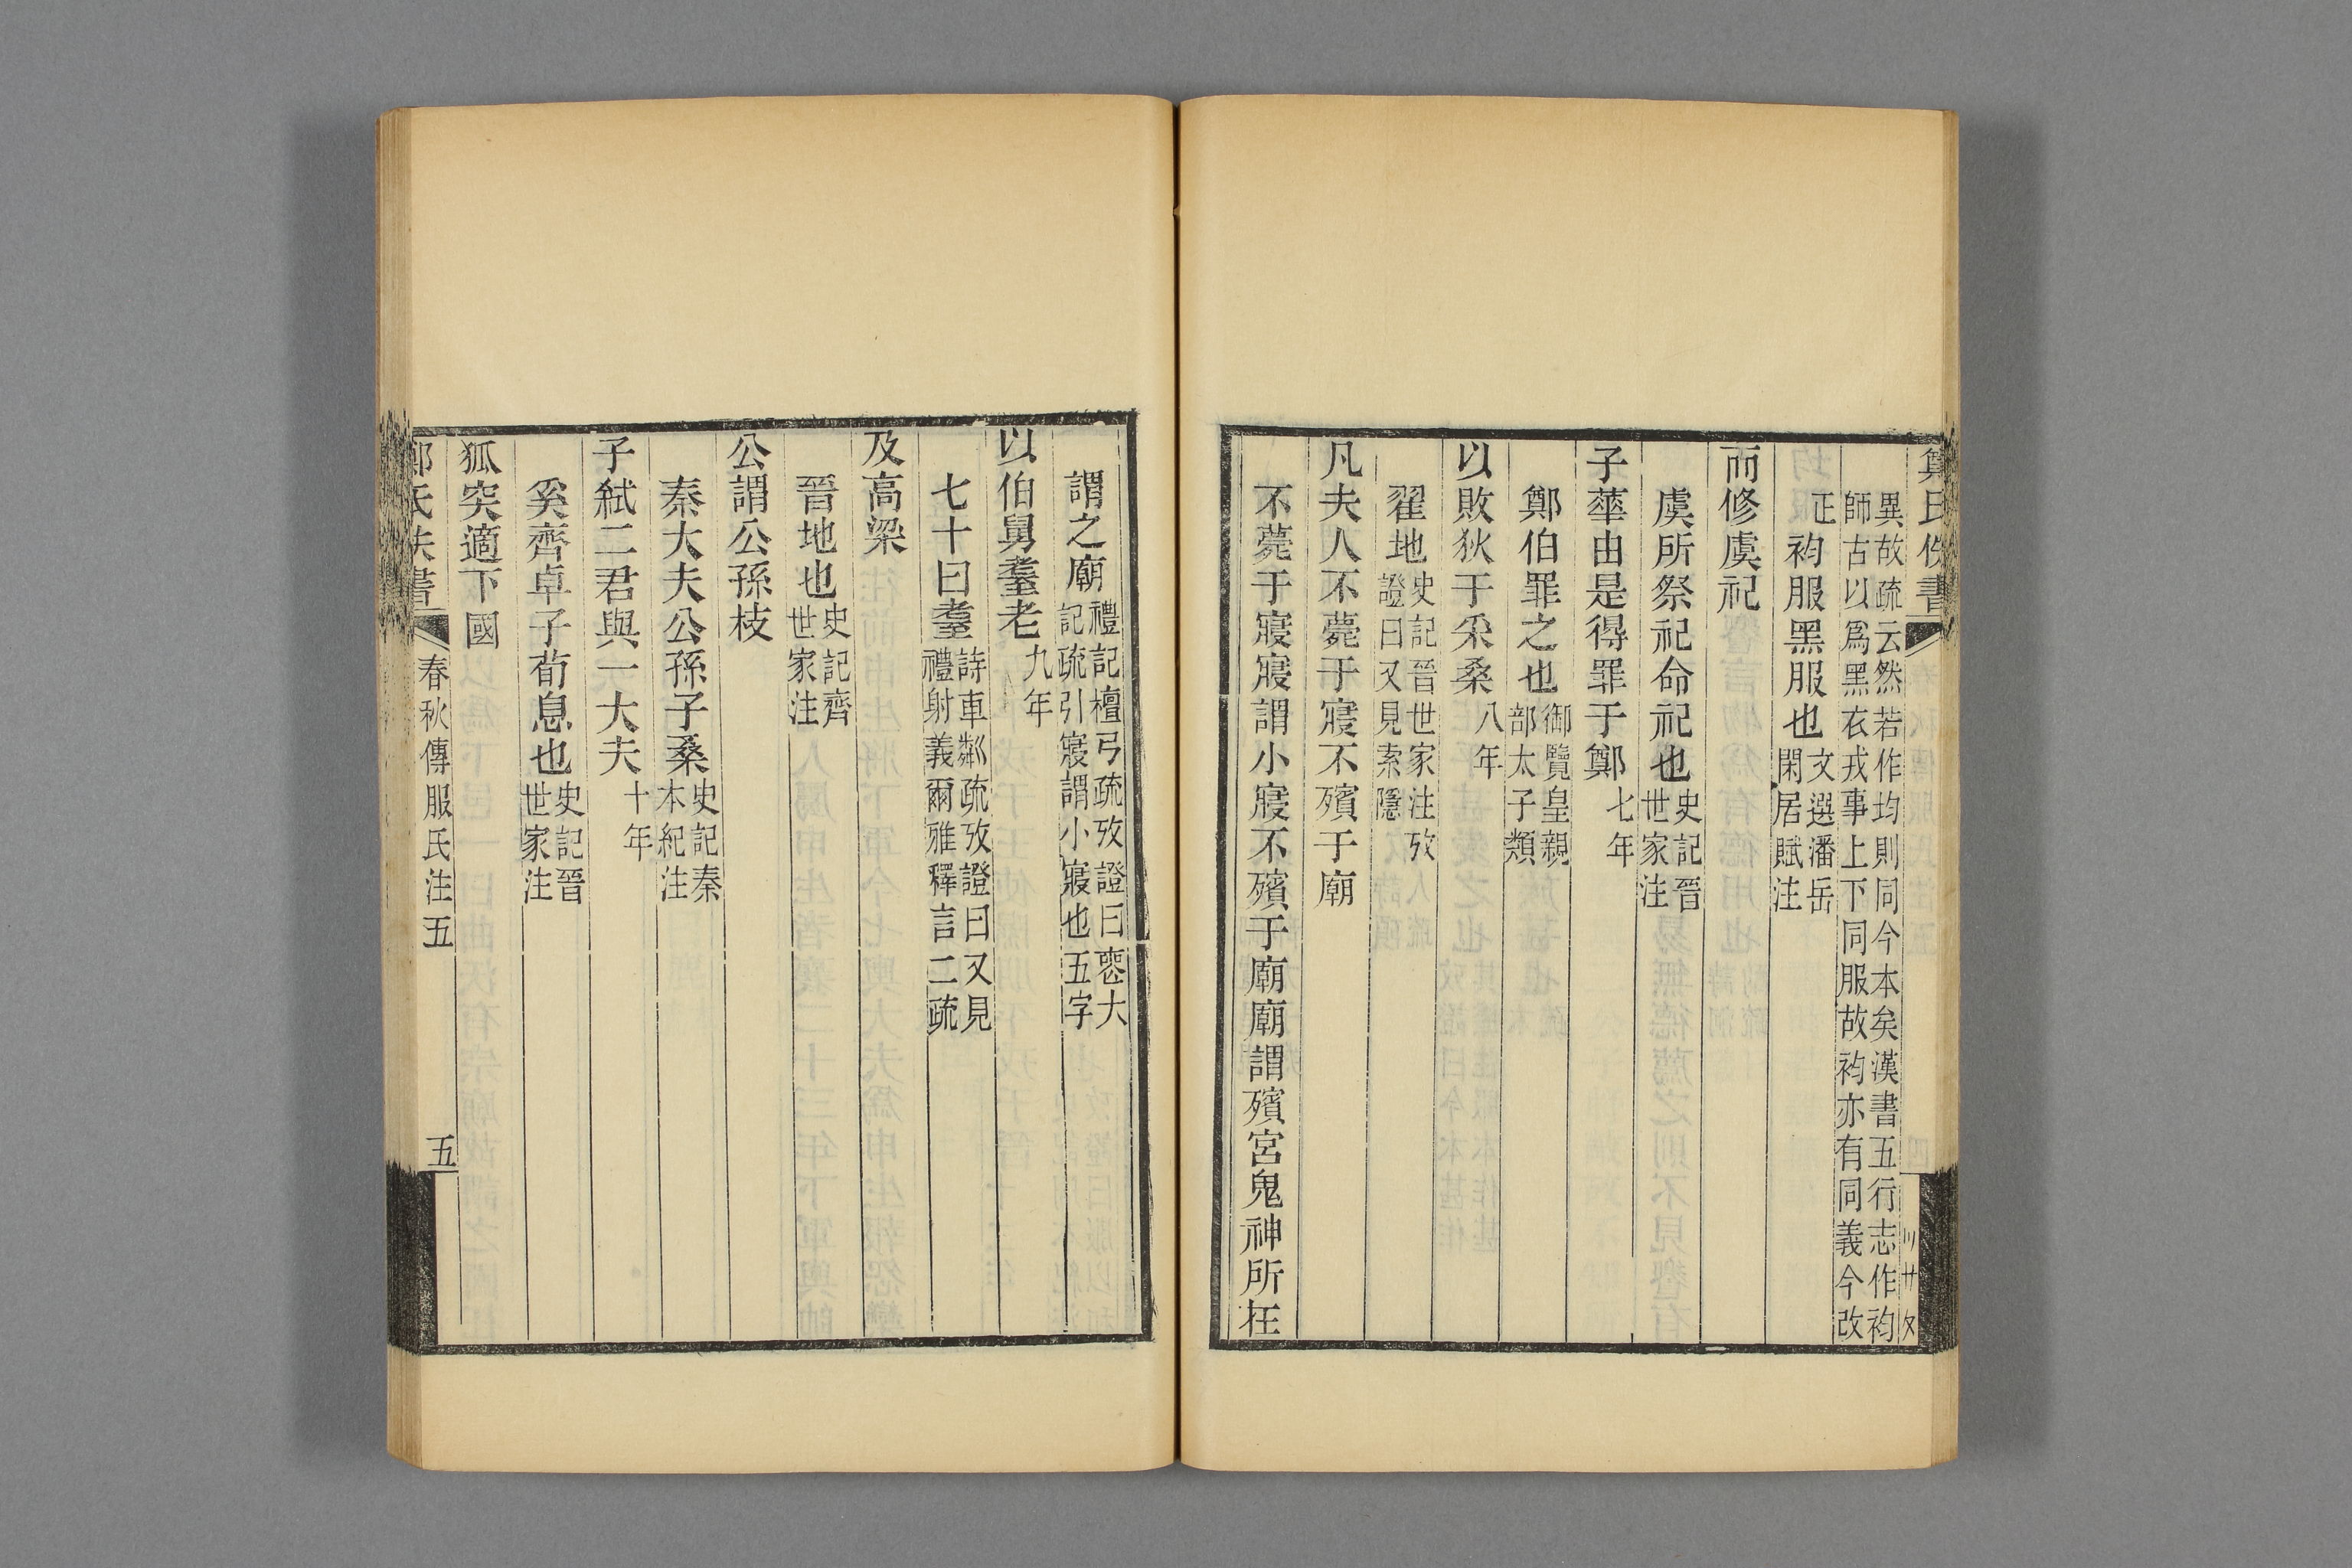 鄭氏佚書
異故疏云然若作均則同今本矣漢書五行志作袀
師古以爲黑衣戎事上下同服故袀亦有同義今改
正
袀服黑服也文選潘岳
閑居賦注
而修虞祀
虞所祭祀命祀也史記晉
世家注
子華由是得罪于鄭七年
鄭伯罪之也御覽皇親
部太子類
以敗狄于采桑八年
翟地史記晉世家注攷
證曰又見索隱
凡夫人不薨于寢不殯于廟
不薨于寢寢謂小寢不殯于廟廟謂殯宮鬼神所在
謂之廟禮記檀弓疏攷證曰喪大
記疏引寢謂小寢也五字
以伯舅耋老九年
七十曰耋詩車鄰疏攷證曰又見
禮射義爾雅釋言二疏
及高梁
晉地也史記齊
世家注
公謂公孫枝
秦大夫公孫子桑史記秦
本紀注
子弒二君與一大夫十年
奚齊卓子荀息也史記晉
世家注
狐突適下國
鄭氏佚書
春秋傳服氏注五
五